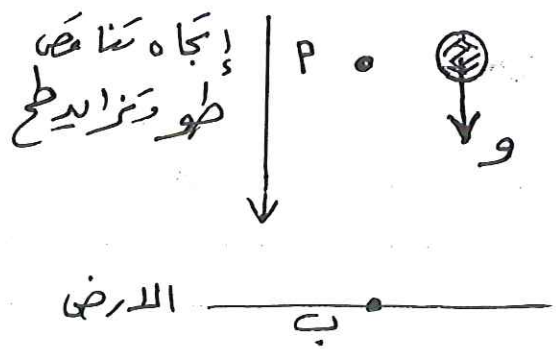 إتجاه تناقص
طو وتزايد طح
م
و
الارض
ب